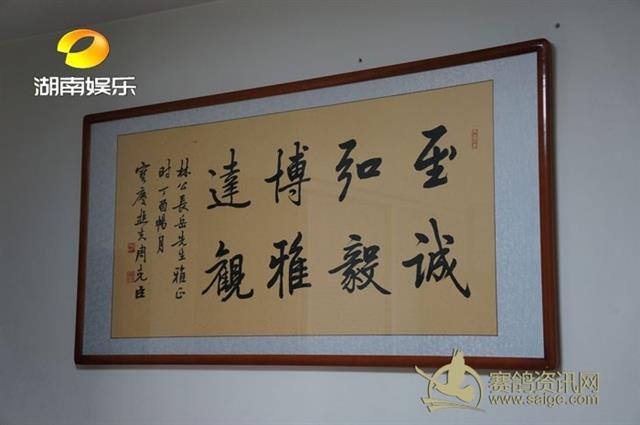 湖南娱乐
至诚
弘毅
博雅
達觀
林公長岳先生雅正
时丁酉暢月
寶慶進士周克臣
赛鸽资讯网
www.saige.com